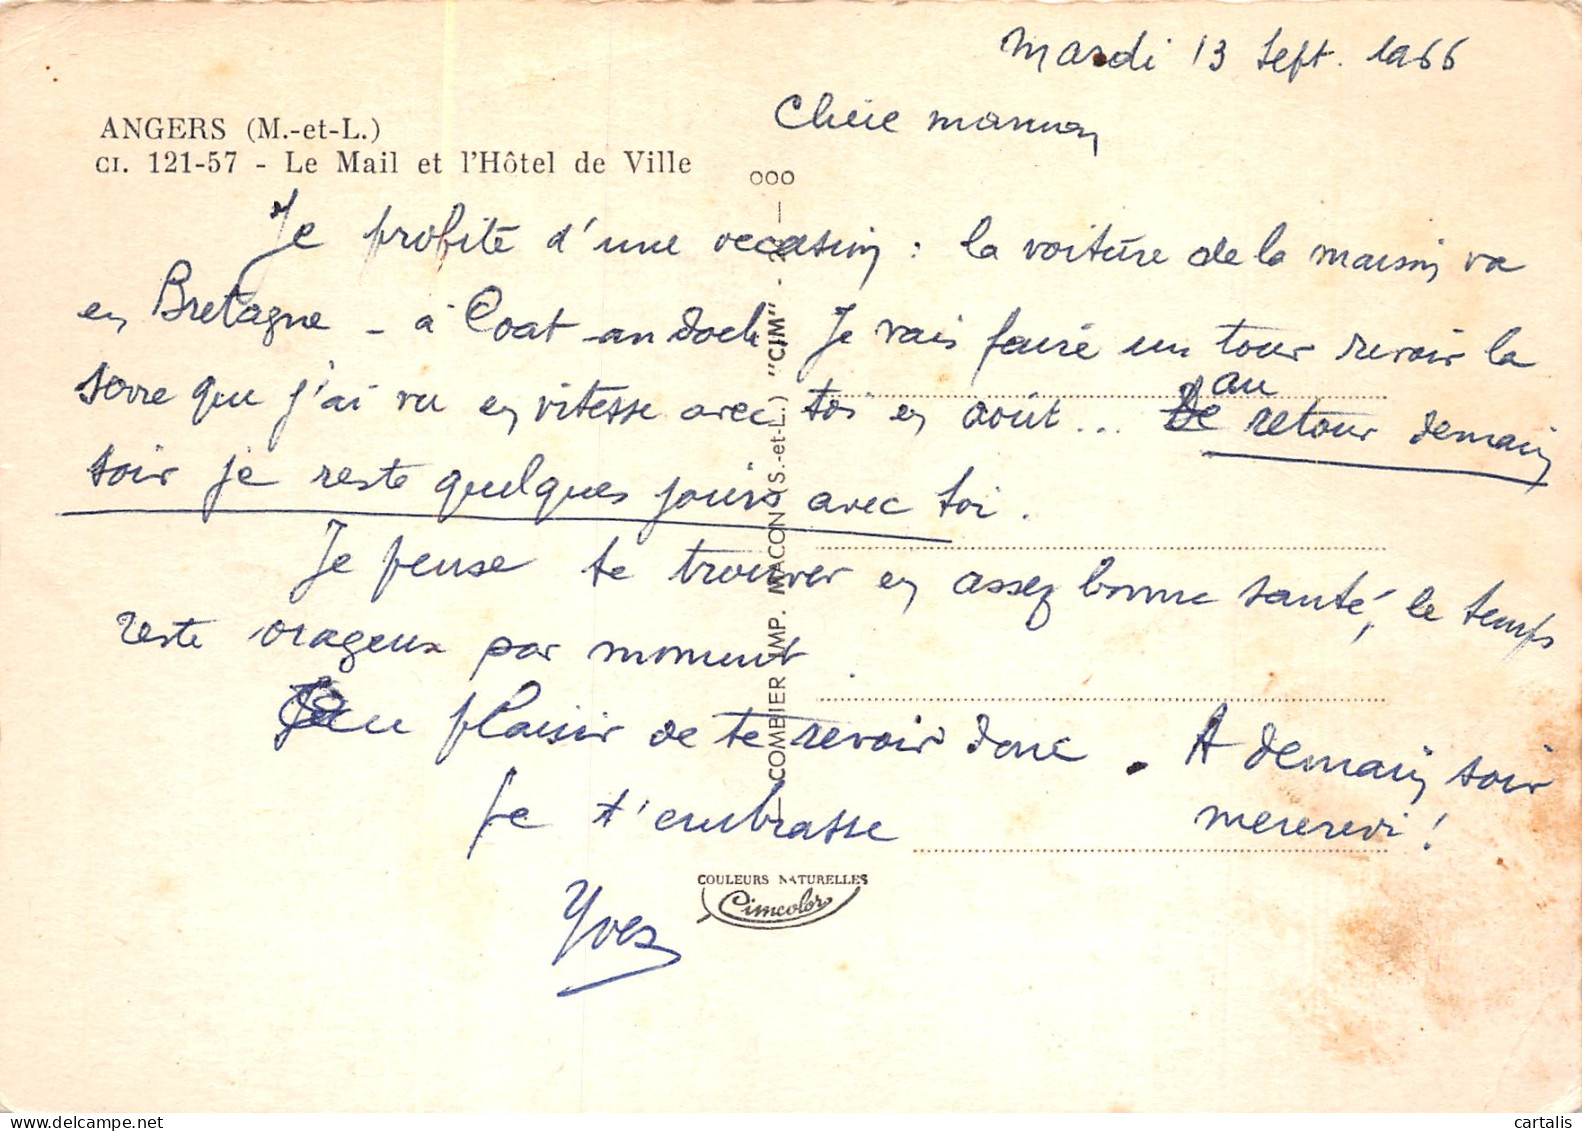 Mardi 13 Sept. 1966
ANGERS (M.-et-L.)
CI. 121-57 - Le Mail et l'Hôtel de Ville
Chère maman
Je profite d'une occasion : la voiture de la maison va
en Bretagne - à Coat-an doch. Je vais faire un tour revoir la
serre que j'ai vu en vitesse avec toi en août... au retour demain
soir je reste quelques jours avec toi.
Je pense te trouver en assez bonne santé, le temps
reste orageux par moment.
Au plaisir de te revoir donc. A demain soir
mercredi !
Je t'embrasse
Yves
COMBIER IMP. MACON (S.-et-L.) "CIM"
COULEURS NATURELLES
Cimcolor
cartalis